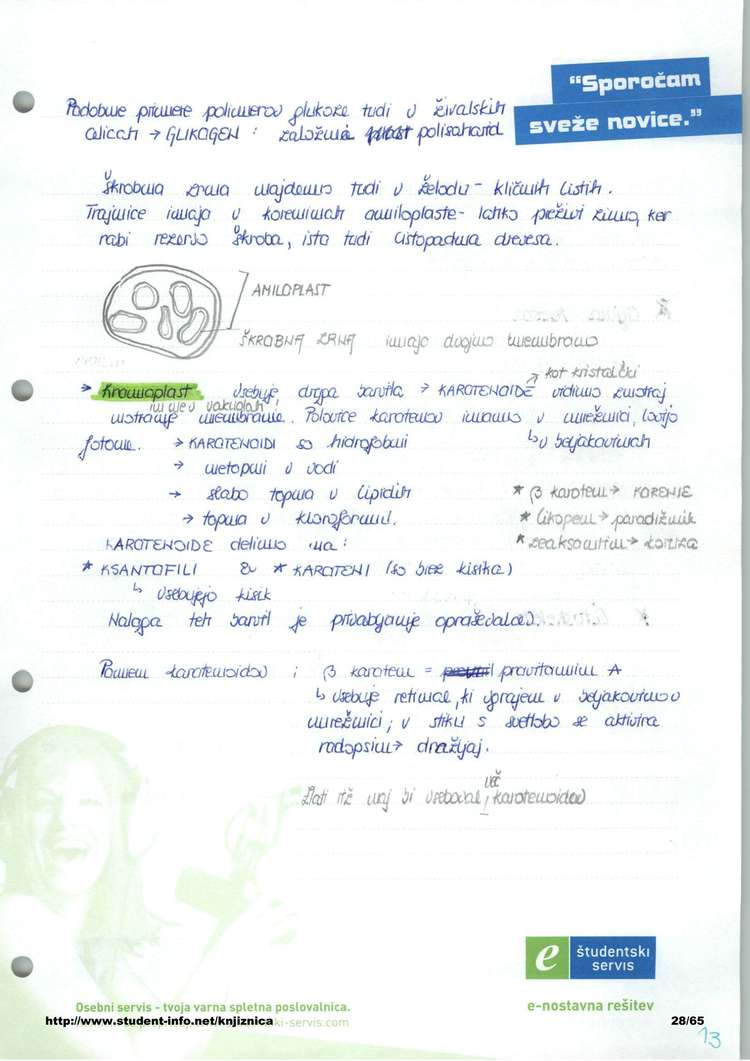 “Sporočam
sveže novice.”
Podobne primere polimerov glukoze tudi v živalskih
celicah → GLIKOGEN : založni polisaharid
Škrobna zrna najdemo tudi v želodu - kličnih listih.
Trajnice imajo v koreninah amiloplaste - lahko preživi zimo, ker
rabi rezervo škroba, isto tudi listopadna drevesa.
AMILOPLAST
ŠKROBNA ZRNA imajo dvojno membrano
kot kristalčki
→ Kromoplast vsebuje druga barvila → KAROTENOIDE vidimo znotraj
in ne v vakuolah
notranje membrane. Polovico karotenov imamo v mrežnici, lovijo
fotone. → KAROTENOIDI so hidrofobni ↳ v beljakovinah
→ netopni v vodi
→ slabo topna v lipidih * β karoten → KORENJE
→ topna v kloroformu. * likopen → paradižnik
KAROTENOIDE delimo na : * zeaksantin → koruza
* KSANTOFILI & * KAROTENI (so brez kisika)
↳ vsebujejo kisik
Naloga teh barvil je privabljanje opraševalcev.
Pomen karotenoidov : β karoten = provitamin A
↳ vsebuje retinal, ki vprajen v beljakovino v
mrežnici ; v stiku s svetlobo se aktivira
rodopsin → dražljaj.
več
Zlati riž naj bi vseboval karotenoidov
e študentski
servis
Osebni servis - tvoja varna spletna poslovalnica.
e-nostavna rešitev
http://www.student-info.net/knjiznica
ki-servis.com
28/65
13